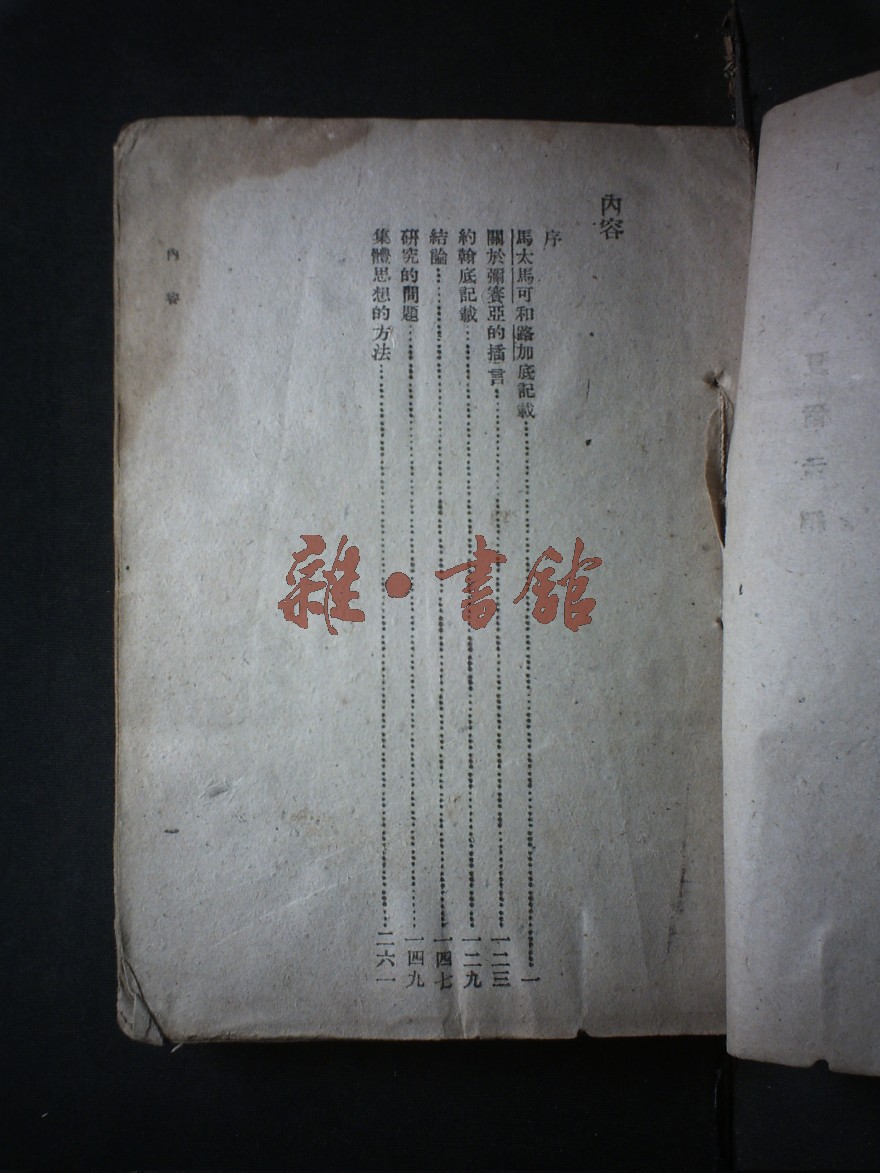 內容
序
馬太馬可和路加底記載……一
關於彌賽亞的插言……一二三
約翰底記載……一二九
結論……一四七
研究的問題……一四九
集體思想的方法……二六一
內容
雜·書館